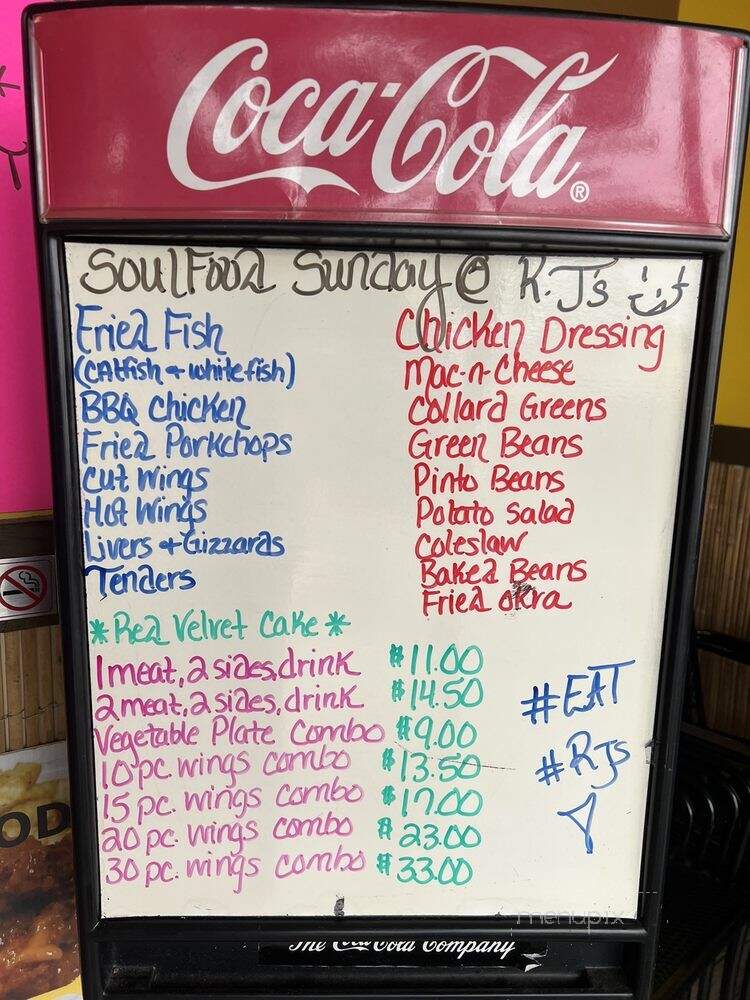 Coca-Cola®
SoulFood Sunday @ R.J's
Fried Fish
(catfish + whitefish)
BBQ Chicken
Fried Porkchops
Cut Wings
Hot Wings
Livers + Gizzards
Tenders
Chicken Dressing
Mac-n-Cheese
Collard Greens
Green Beans
Pinto Beans
Potato Salad
Coleslaw
Baked Beans
Fried Okra
*Red Velvet Cake*
1 meat, 2 sides, drink $11.00
2 meat, 2 sides, drink $14.50
Vegetable Plate Combo $9.00
10 pc. wings combo $13.50
15 pc. wings combo $17.00
20 pc. wings combo $23.00
30 pc. wings combo $33.00
#EAT
#RJs
OD
menupix
The Coca-Cola Company